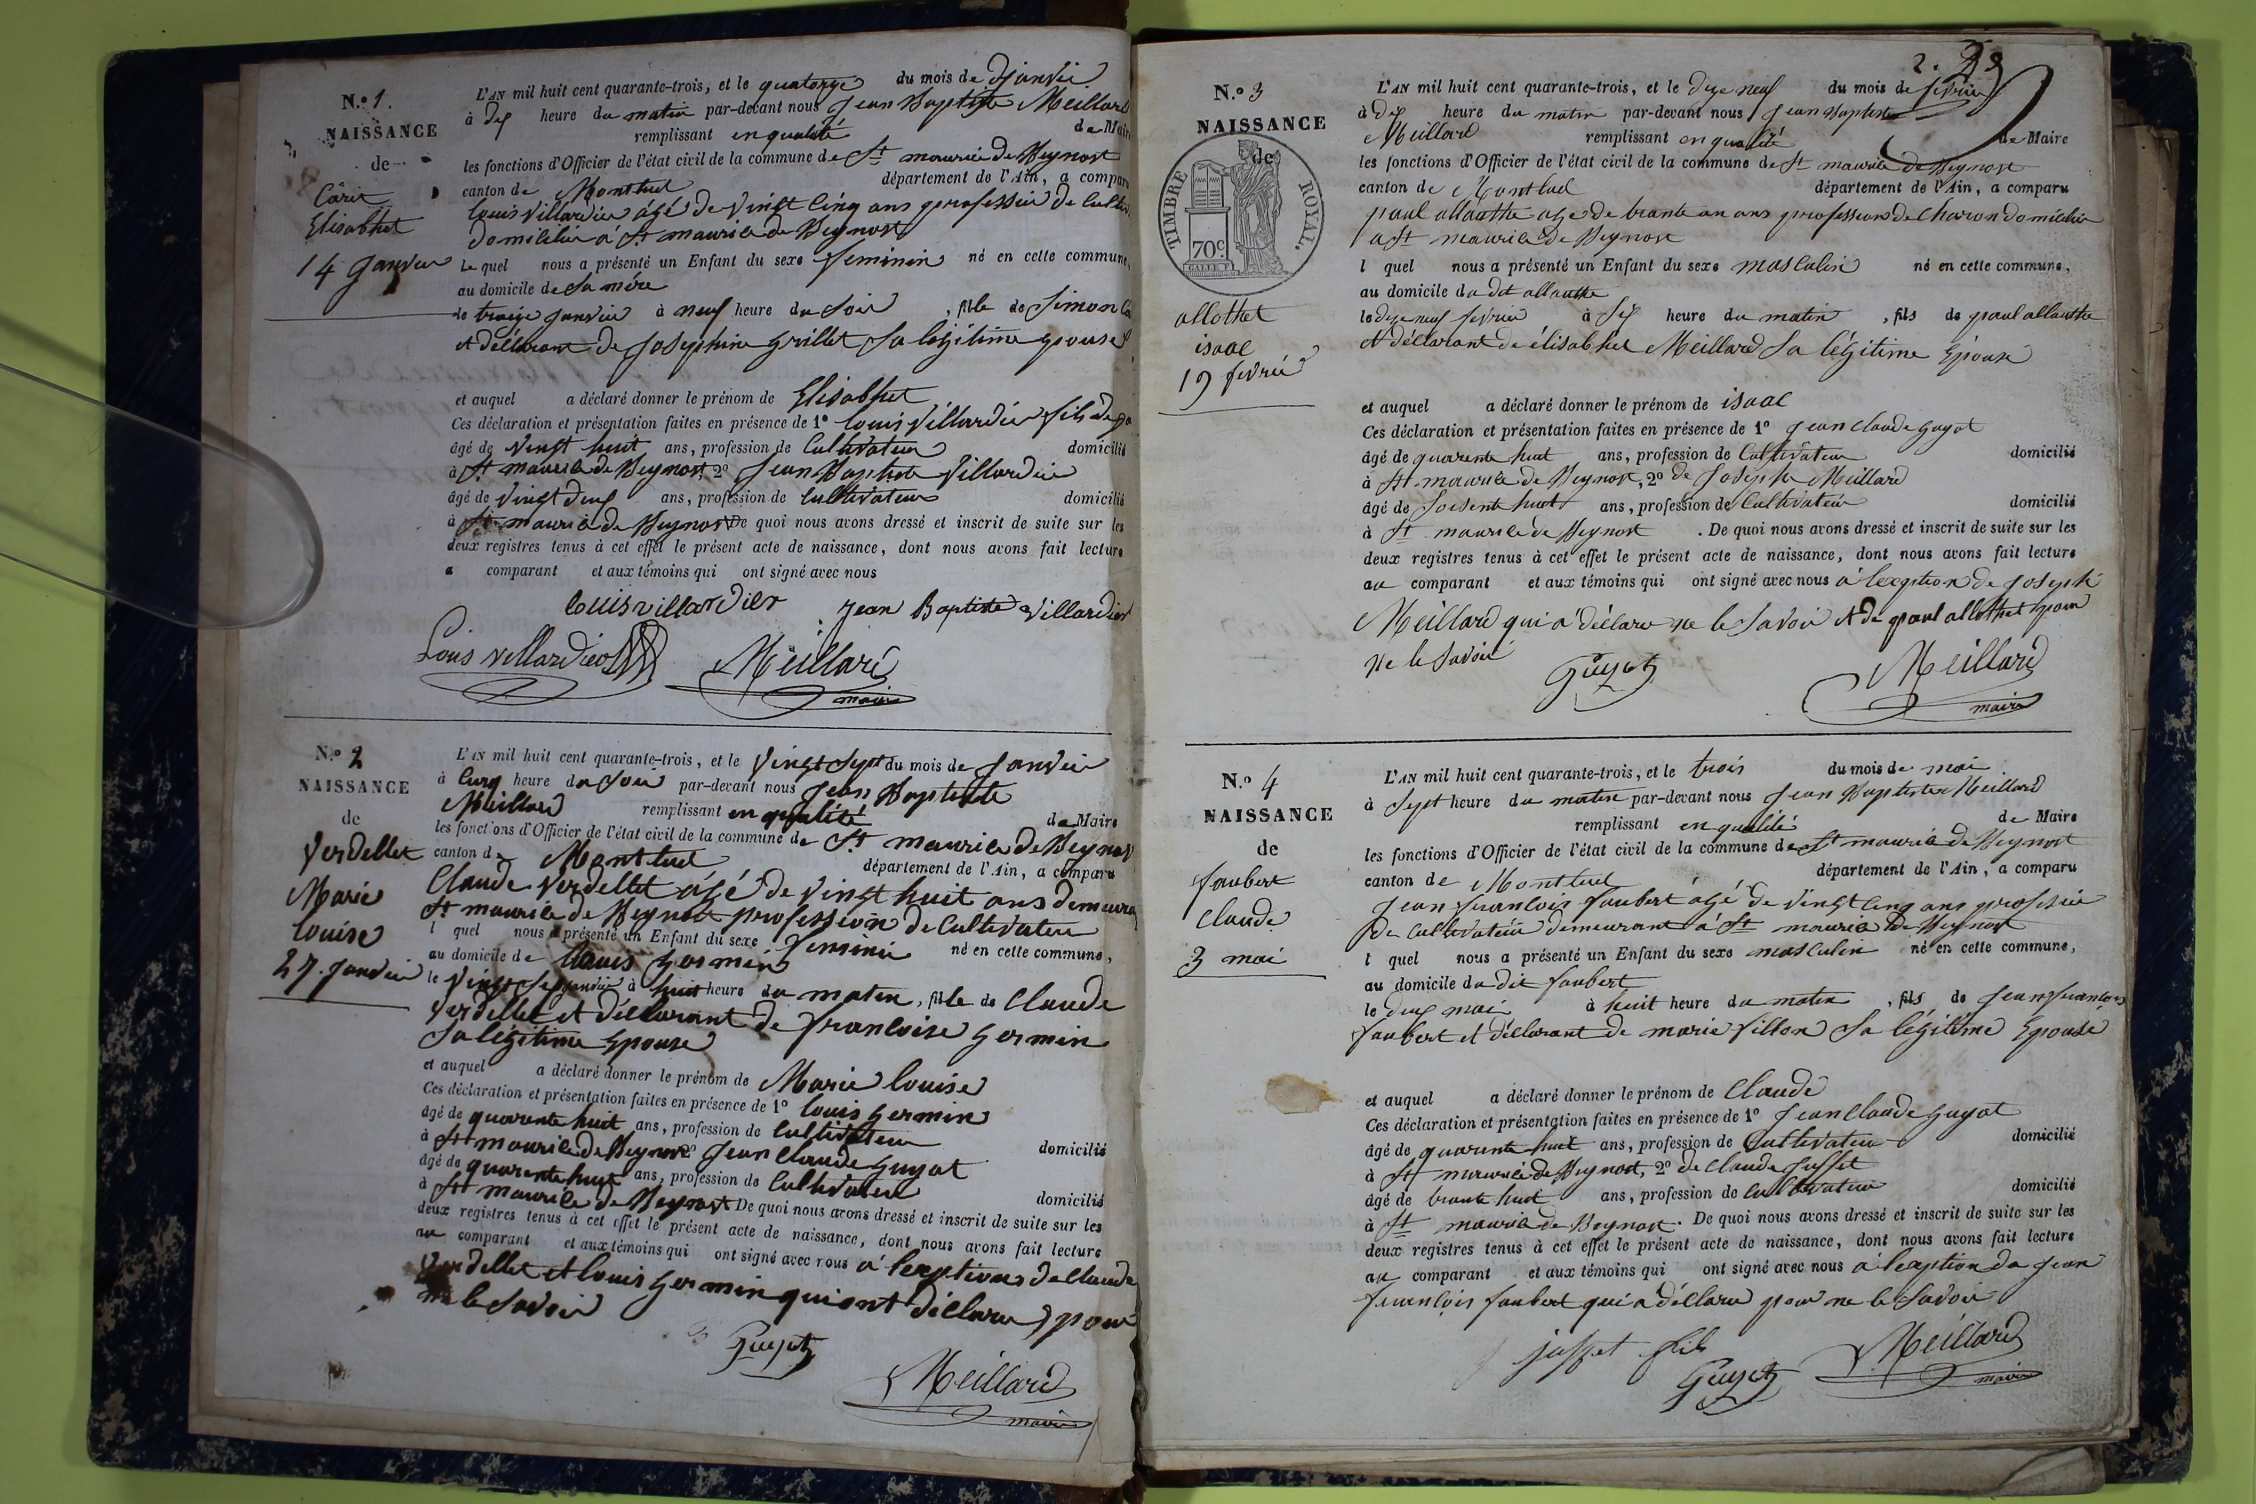 N.º 1.
NAISSANCE
de
Cârit
Elisabhet
14 Janvier
L'AN mil huit cent quarante-trois, et le quatorze du mois de Janvié
à dix heure du matin par-devant nous Jean Baptiste Meillard
remplissant en qualité de Maire
les fonctions d'Officier de l'état civil de la commune de St maurice de Beynost
canton de Montluel département de l'Ain, a comparu
louis villardier âgé de vingt cinq ans profession de
domicilié à St maurice de Beynost
le quel nous a présenté un Enfant du sexe feminin né en cette commune,
au domicile de sa mére
le treize janvier à neuf heure du soir, fille de Simon
et déclarant de Josephine grillet sa légitime épouse
et auquel a déclaré donner le prénom de Elisabhet
Ces déclaration et présentation faites en présence de 1º louis villardier fils de
âgé de vingt huit ans, profession de Cultivateur domicilié
à St maurice de Beynost, 2º Jean Baptiste villardier
âgé de vingt deux ans, profession de cultivateur domicilié
à St maurice de Beynost De quoi nous avons dressé et inscrit de suite sur les
deux registres tenus à cet effet le présent acte de naissance, dont nous avons fait lecture
a comparant et aux témoins qui ont signé avec nous
louis villardier Jean Baptiste villardier
Louis villardier Meillard
maire
N.º 2
NAISSANCE
de
Verdellet
Marie
louise
27 Janvier
L'AN mil huit cent quarante-trois, et le vingt sept du mois de Janvier
à cinq heure du soir par-devant nous Jean Baptiste
Meillard remplissant en qualité de Maire
les fonctions d'Officier de l'état civil de la commune de St maurice de Beynost
canton de Montluel département de l'Ain, a comparu
Claude verdellet âgé de vingt huit ans demeurant
St maurice de Beynost profession de cultivateur
l quel nous a présenté un Enfant du sexe feminin né en cette commune,
au domicile de louis germin
le vingt sept janvier à huit heure du matin, fille de Claude
verdellet et déclarant de francoise germin
sa légitime épouse
et auquel a déclaré donner le prénom de Marie louise
Ces déclaration et présentation faites en présence de 1º louis germin
âgé de quarente huit ans, profession de cultivateur
à St maurice de Beynost 2º Jean Claude guyot domicilié
âgé de quarente huit ans, profession de cultivateur
à St maurice de Beynost De quoi nous avons dressé et inscrit de suite sur les domicilié
deux registres tenus à cet effet le présent acte de naissance, dont nous avons fait lecture
au comparant et aux témoins qui ont signé avec nous à l'exeptions de claude
verdellet et louis germin qui ont déclaré pour
ne le savoir
Guyot
Meillard
maire
2.
N.º 3
NAISSANCE
de
TIMBRE ROYAL.
70 c.
allothet
isaac
19 fevrié
L'AN mil huit cent quarante-trois, et le dize neuf du mois de fevrier
à dix heure du matin par-devant nous Jean Baptiste
Meillard remplissant en qualité de Maire
les fonctions d'Officier de l'état civil de la commune de St maurice de Beynost
canton de Montluel département de l'Ain, a comparu
paul allauthe age de trante un ans profession de charon domicilié
a St maurice de Beynost
l quel nous a présenté un Enfant du sexe masculin né en cette commune,
au domicile du dit allauthe
le dize neuf fevrier à six heure du matin, fils de paul allauthe
et déclarant de élisabhet Meillard sa légitime épouse
et auquel a déclaré donner le prénom de isaac
Ces déclaration et présentation faites en présence de 1º Jean claude guyot
âgé de quarente huit ans, profession de cultivateur domicilié
à St maurice de Beynost, 2º de Joseph Meillard
âgé de soisente huit ans, profession de cultivateur domicilié
à St maurice de Beynost. De quoi nous avons dressé et inscrit de suite sur les
deux registres tenus à cet effet le présent acte de naissance, dont nous avons fait lecture
au comparant et aux témoins qui ont signé avec nous à l'exeption de Joseph
Meillard qui a déclare ne le savoir et de paul allothet pour
ne le savoir
Guyot Meillard
maire
N.º 4
NAISSANCE
de
faubert
claude
3 mai
L'AN mil huit cent quarante-trois, et le trois du mois de mai
à sept heure du matin par-devant nous Jean Baptiste Meillard
remplissant en qualité de Maire
les fonctions d'Officier de l'état civil de la commune de St maurice de Beynost
canton de Montluel département de l'Ain, a comparu
Jean francois faubert âgé de vingt cinq ans profession
de cultivateur demeurant à St maurice de Beynost
l quel nous a présenté un Enfant du sexe masculin né en cette commune,
au domicile du dit faubert
le deux mai à huit heure du matin, fils de Jean francois
faubert et déclarant de marie villon sa légitime épouse
et auquel a déclaré donner le prénom de Claude
Ces déclaration et présentation faites en présence de 1º Jean claude guyot
âgé de quarente huit ans, profession de Cultivateur domicilié
à St maurice de Beynost, 2º de claude juffet
âgé de trante huit ans, profession de cultivateur domicilié
à St maurice de Beynost. De quoi nous avons dressé et inscrit de suite sur les
deux registres tenus à cet effet le présent acte de naissance, dont nous avons fait lecture
au comparant et aux témoins qui ont signé avec nous à l'exeption du jean
francois faubert qui a déclare pour ne le savoir
juffet fils Guyot Meillard
maire